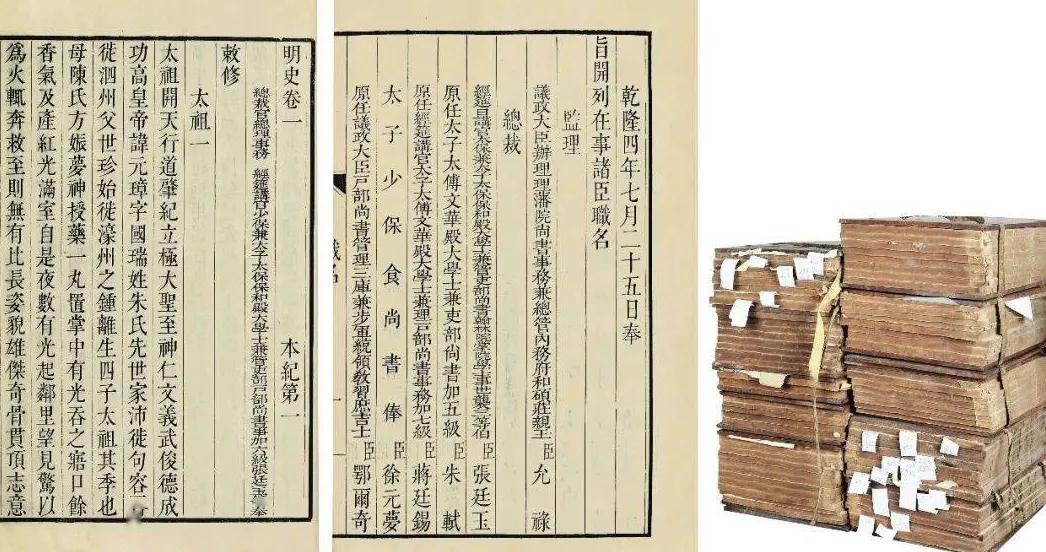 明史卷一 本紀第一
總裁官總理事務 經筵講官少保兼太子太保保和殿大學士兼管吏部戶部尚書事加六級張廷玉 奉
敕修
太祖一
太祖開天行道肇紀立極大聖至神仁文義武俊德成
功高皇帝諱元璋字國瑞姓朱氏先世家沛徙句容再
徙泗州父世珍始徙濠州之鍾離生四子太祖其季也
母陳氏方娠夢神授藥一丸置掌中有光吞之寤口餘
香氣及產紅光滿室自是夜數有光起鄰里望見驚以
爲火輒奔救至則無有比長姿貌雄傑奇骨貫頂志意
乾隆四年七月二十五日奉
旨開列在事諸臣職名
監理
議政大臣辦理理藩院尚書事務兼總管內務府和碩莊親王臣允祿
總裁
經筵日講官太保兼太子太保保和殿大學士兼管吏部尚書翰林院掌院學士事世襲三等伯臣張廷玉
原任太子太傅文華殿大學士兼吏部尚書加五級臣朱軾
原任經筵講官太子太傅文華殿大學士兼理戶部尚書事務加七級臣蔣廷錫
太子少保食尚書俸臣徐元夢
原任議政大臣戶部尚書管理三庫兼步軍統領敎習庶吉士臣鄂爾奇
職名
一